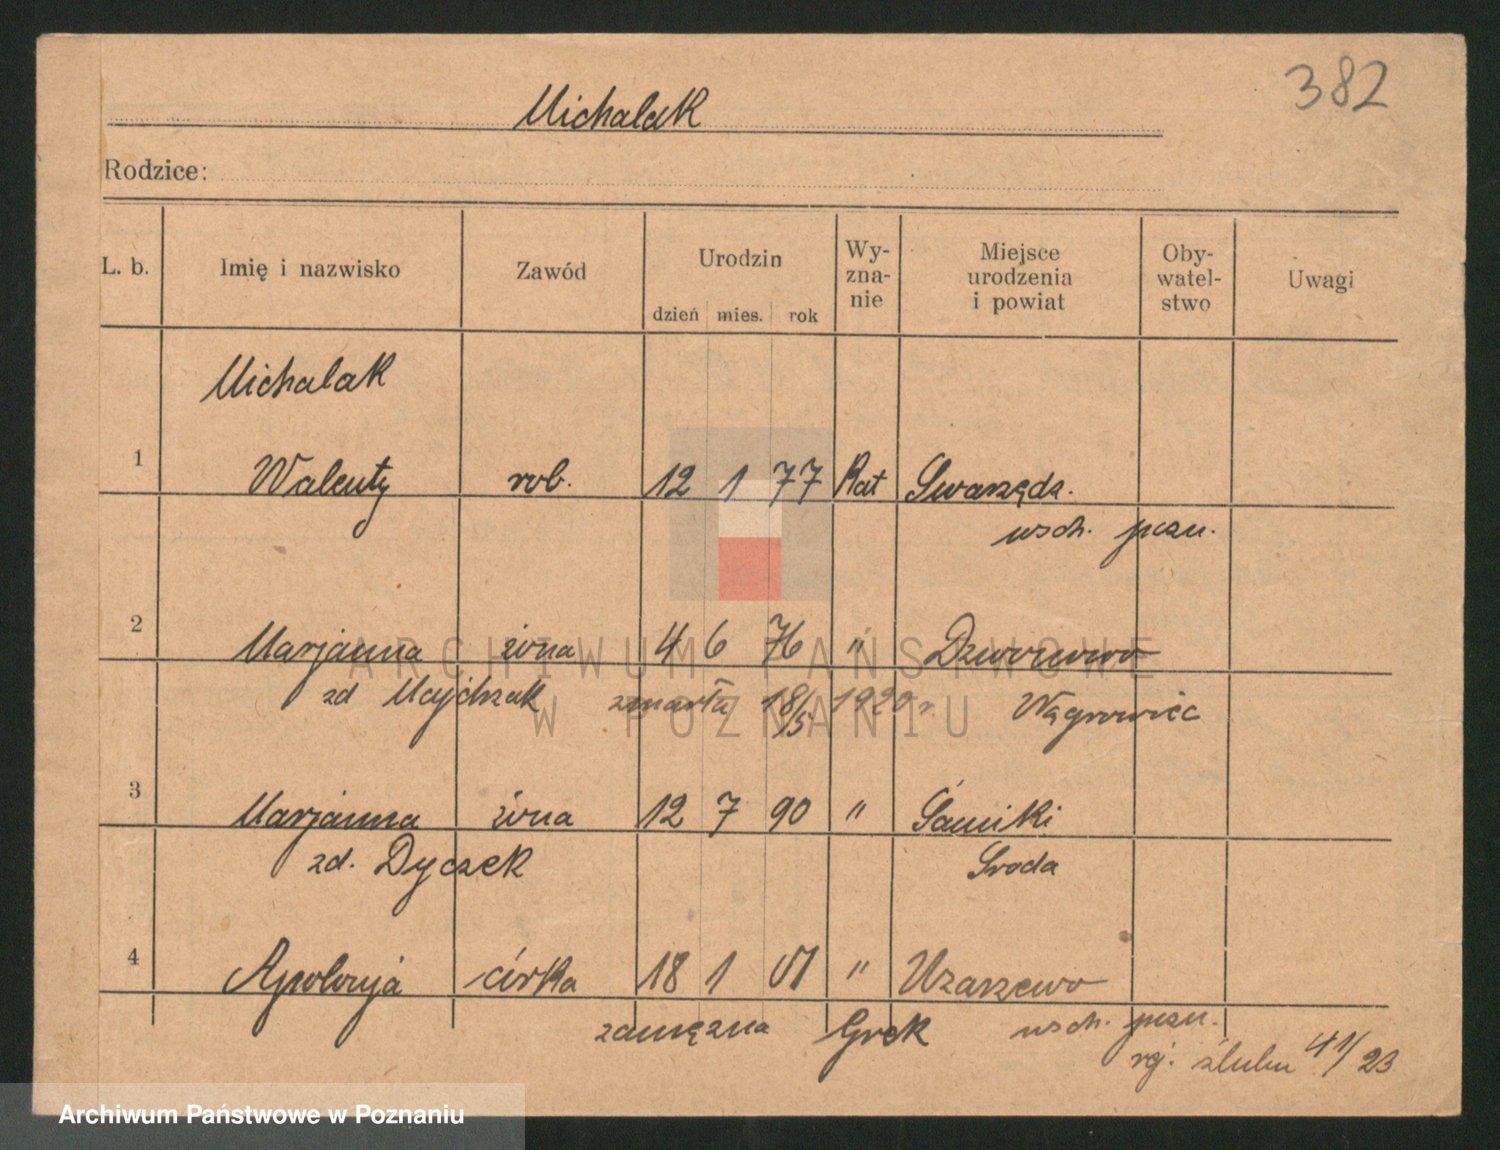 382
Michalak
Rodzice:
L. b. Imię i nazwisko Zawód Urodzin dzień mies. rok Wy-zna-nie Miejsce urodzenia i powiat Oby-watel-stwo Uwagi
Michalak
1 Walenty rob. 12 1 77 Kat Swarzędz.
wsch. pozn.
2 Marjanna żona 4 6 76 " Dzwonowo
zd Majchzak zmarła 18/5 1920 r. Wągrowiec
3 Marjanna żona 12 7 90 "
zd. Dyczek Sroda
4 Apolonja córka 18 1 01 " Uzarzewo
zamężna Grek wsch. pozn.
rej. ślubu 41/23
ARCHIWUM PAŃSTWOWE
W POZNANIU
Archiwum Państwowe w Poznaniu